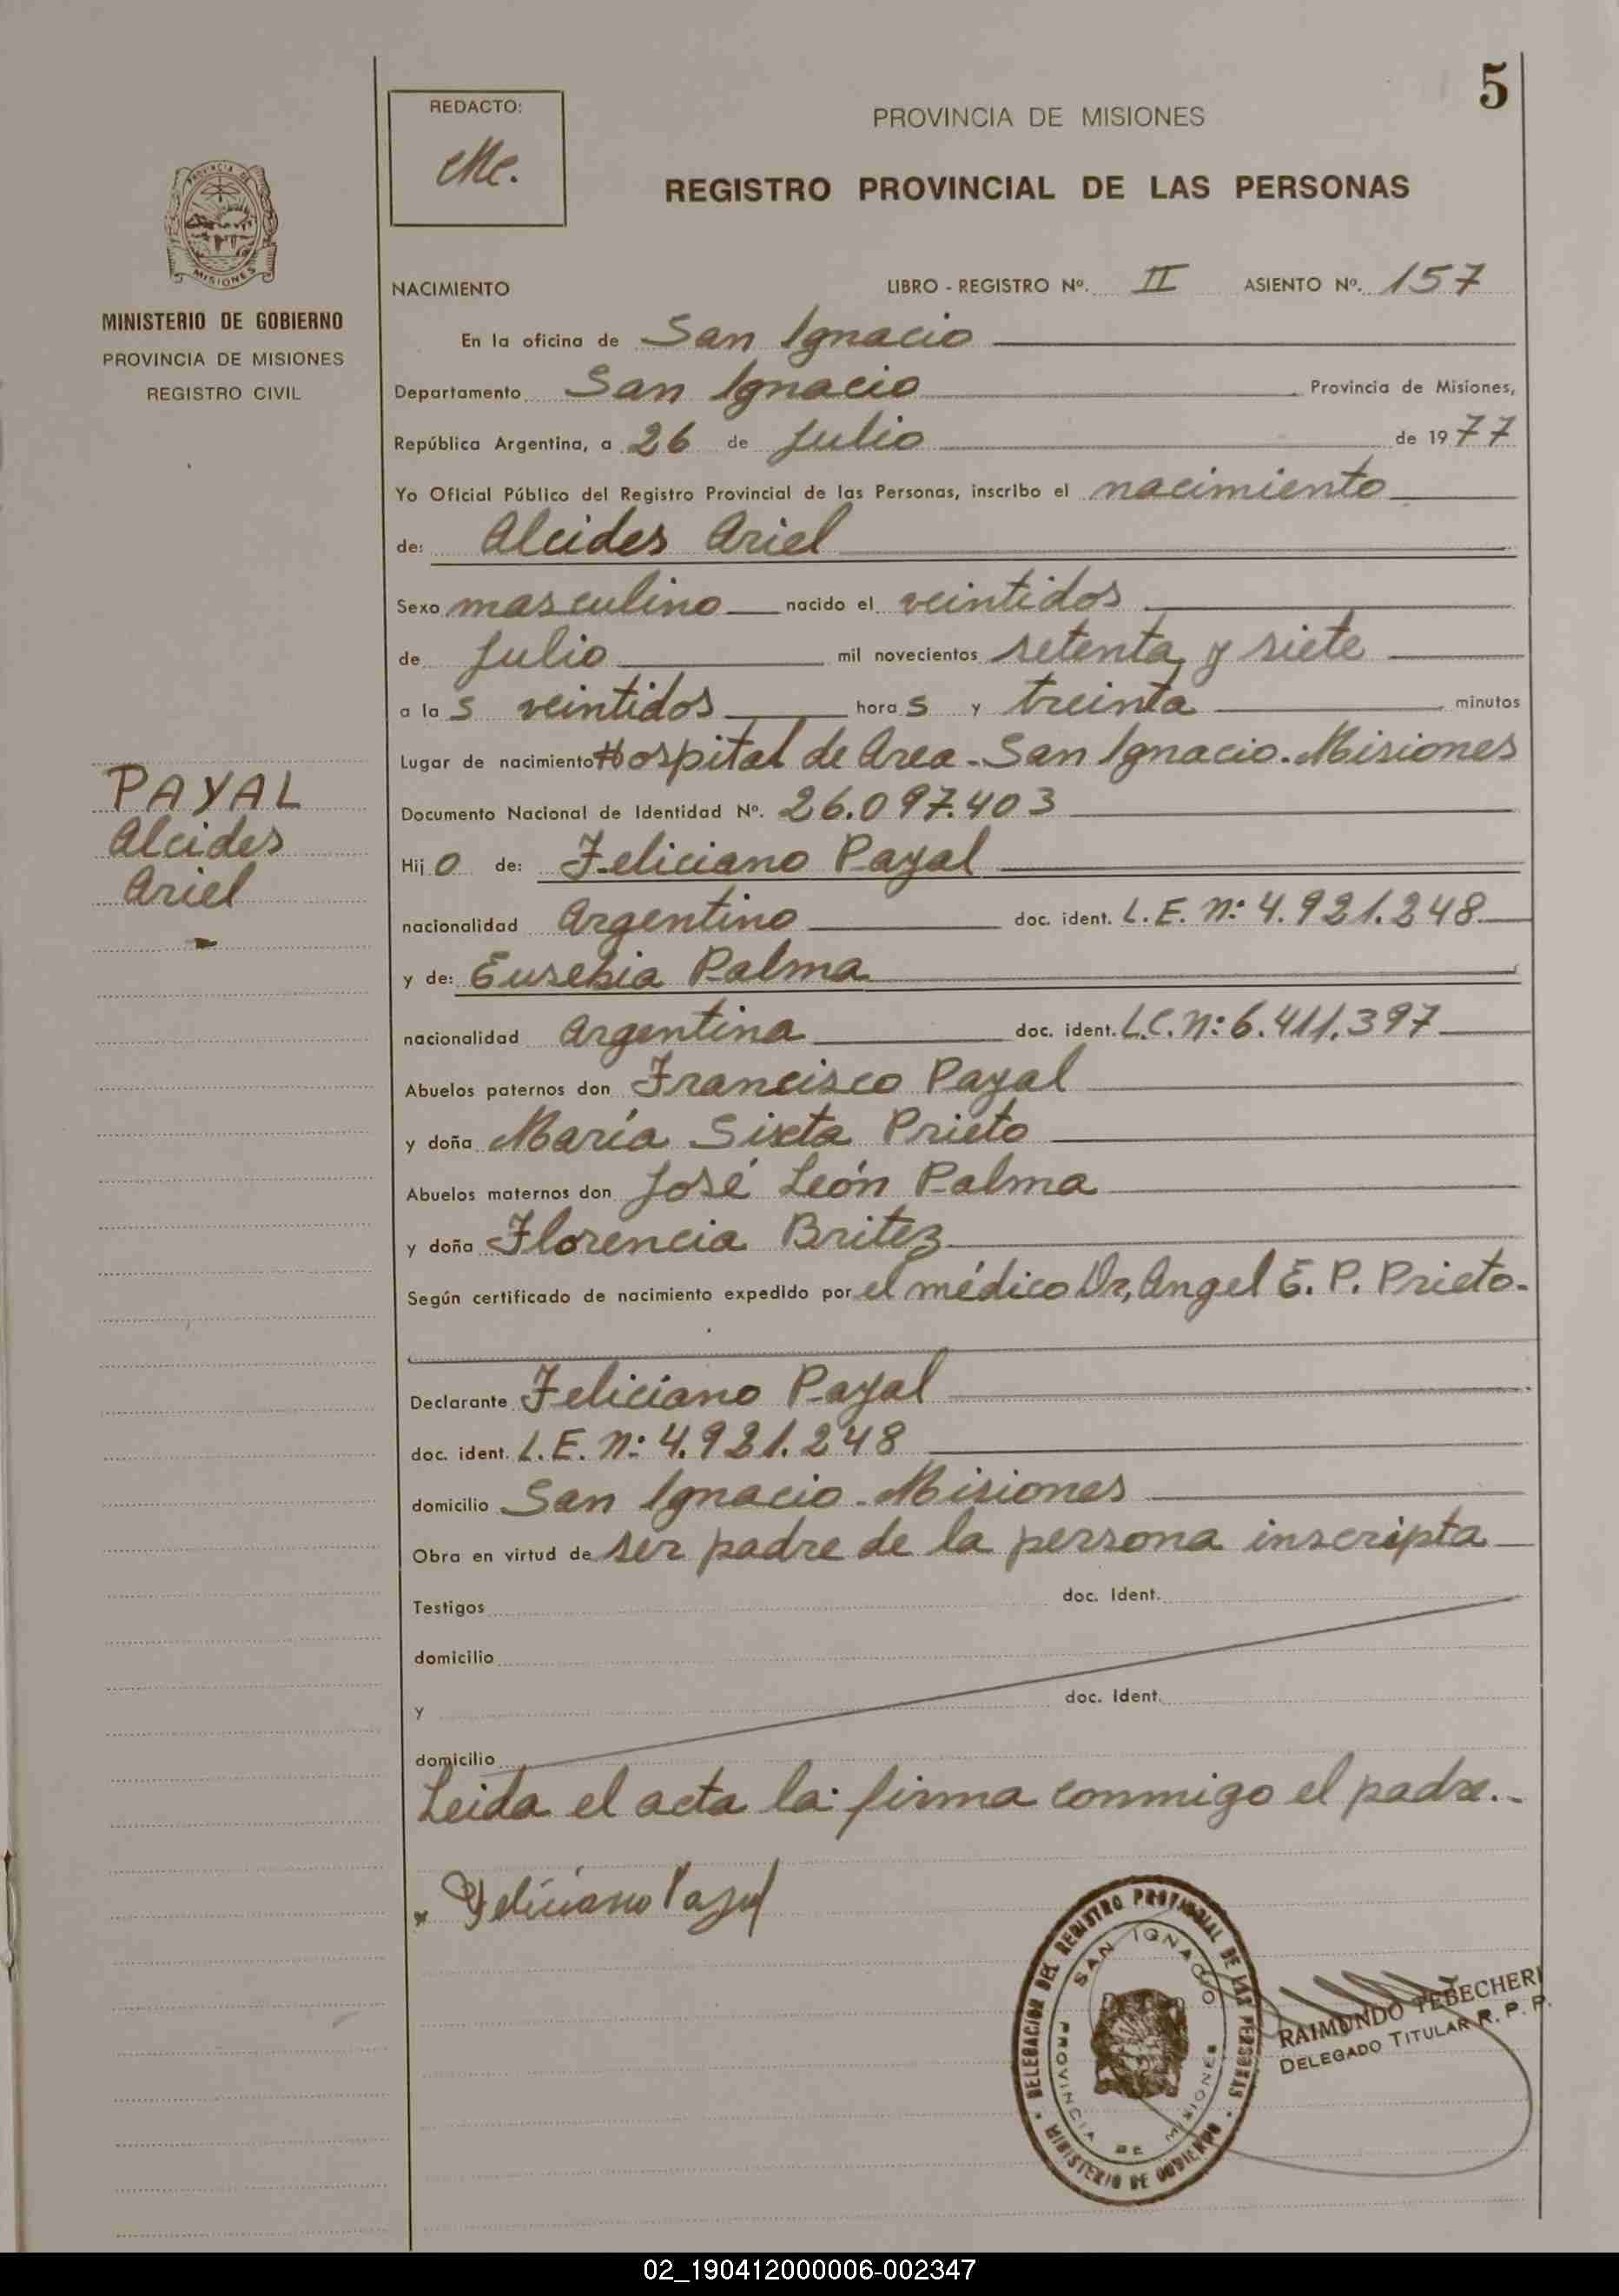 5
REDACTO:
Mc.
PROVINCIA DE MISIONES
REGISTRO PROVINCIAL DE LAS PERSONAS
PROVINCIA DE
MISIONES
MINISTERIO DE GOBIERNO
PROVINCIA DE MISIONES
REGISTRO CIVIL
NACIMIENTO LIBRO - REGISTRO Nº. II ASIENTO Nº. 157
En la oficina de San Ignacio
Departamento San Ignacio Provincia de Misiones,
República Argentina, a 26 de Julio de 1977
Yo Oficial Público del Registro Provincial de las Personas, inscribo el nacimiento
de: Alcides Ariel
Sexo masculino nacido el veintidos
de Julio mil novecientos setenta y siete
a las veintidos horas y treinta minutos
Lugar de nacimiento Hospital de Area - San Ignacio. Misiones
PAYAL
Alcides
Ariel
Documento Nacional de Identidad Nº. 26.097.403
Hijo de: Feliciano Payal
nacionalidad Argentino doc. ident. L.E. Nº: 4.921.248
y de: Eusebia Palma
nacionalidad Argentina doc. ident. L.C. Nº: 6.411.397
Abuelos paternos don Francisco Payal
y doña María Sixta Prieto
Abuelos maternos don José León Palma
y doña Florencia Britez
Según certificado de nacimiento expedido por el médico Dr, Angel E. P. Prieto.
Declarante Feliciano Payal
doc. ident. L.E. Nº: 4.921.248
domicilio San Ignacio - Misiones
Obra en virtud de ser padre de la persona inscripta
Testigos doc. Ident.
domicilio
y doc. Ident.
domicilio
Leida el acta la firma conmigo el padre.-
x Feliciano Payal
DELEGACION DEL REGISTRO PROVINCIAL DE LAS PERSONAS
SAN IGNACIO
PROVINCIA DE MISIONES
MINISTERIO DE GOBIERNO
RAIMUNDO TEBECHERI
DELEGADO TITULAR R. P. P.
02_190412000006-002347